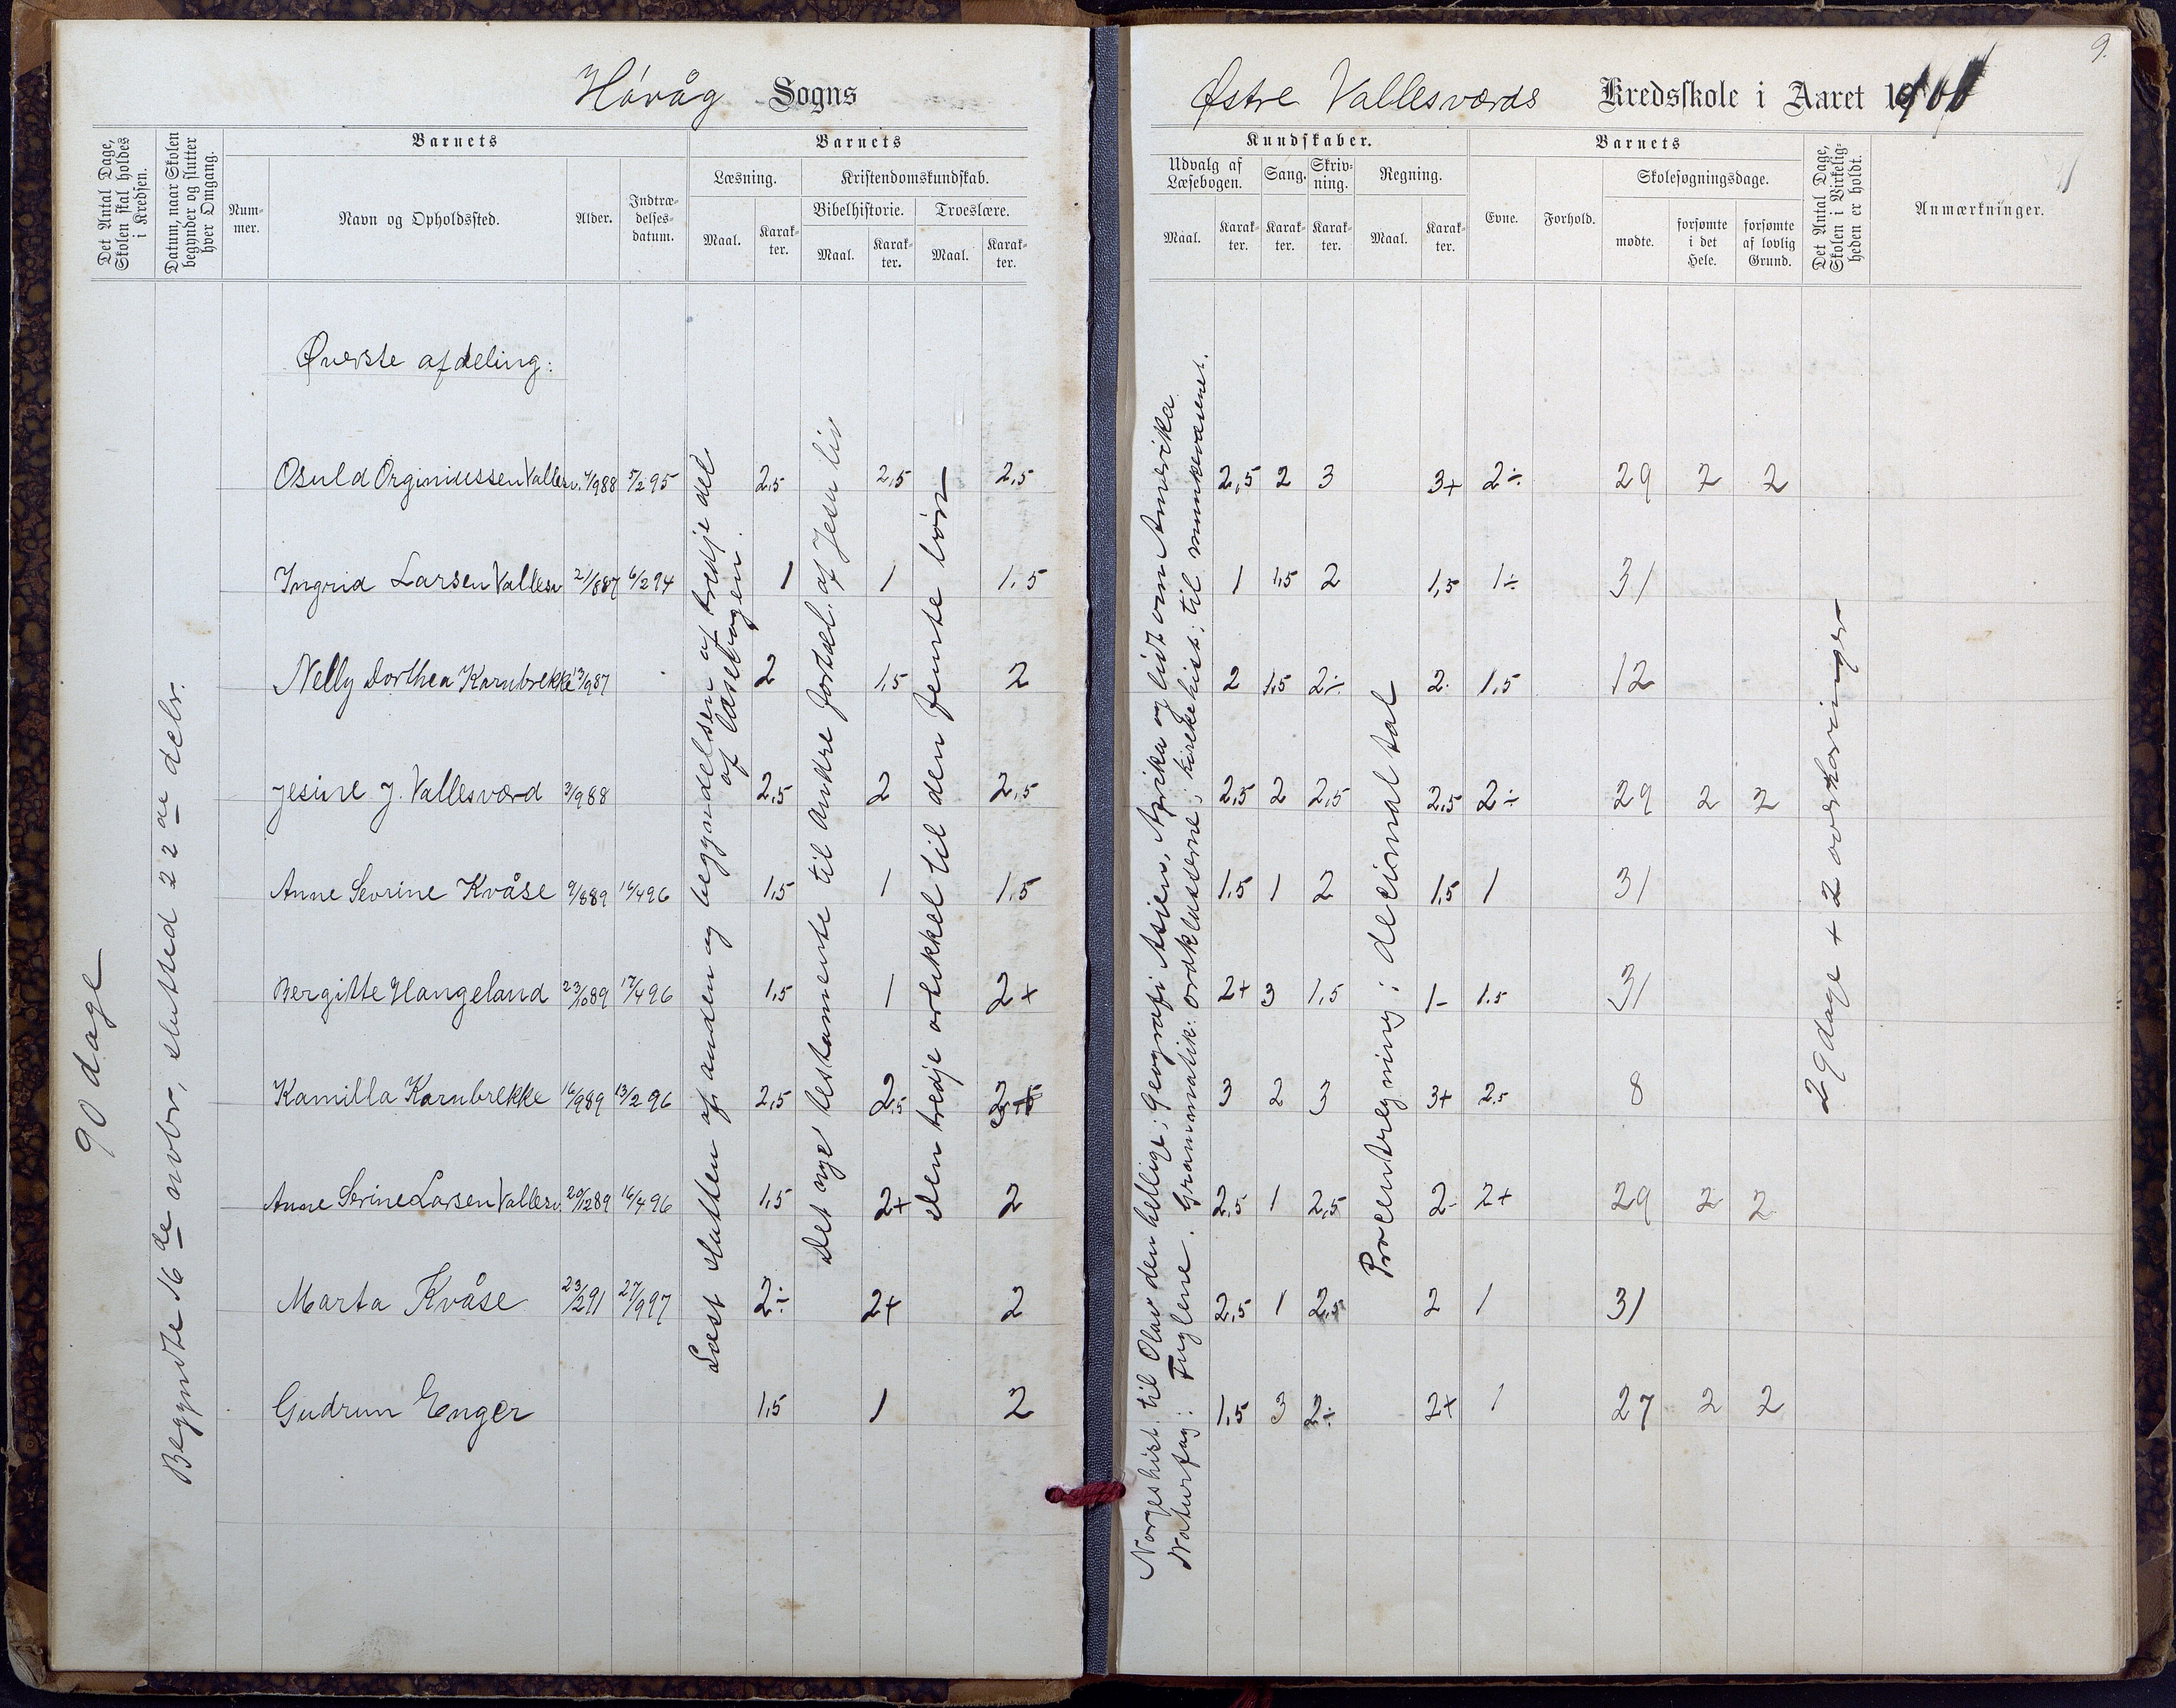 9.
Høvåg Sogns
Østre Vallesværds Kredsskole i Aaret 1900
Det Antal Dage, Skolen skal holdes i Kredsen.
Datum, naar Skolen begynder og slutter hver Omgang.
Barnets
Num-mer.
Navn og Opholdssted.
Alder.
Indtræ-delses-datum.
Barnets
Læsning.
Maal.
Karak-ter.
Kristendomskundskab.
Bibelhistorie.
Maal.
Karak-ter.
Troeslære.
Maal.
Karak-ter.
Kundskaber.
Udvalg af Læsebogen.
Maal.
Karak-ter.
Sang.
Karak-ter.
Skriv-ning.
Karak-ter.
Regning.
Maal.
Karak-ter.
Barnets
Evne.
Forhold.
Skolesøgningsdage.
mødte.
forsømte i det Hele.
forsømte af lovlig Grund.
Det Antal Dage, Skolen i Virkelig-heden er holdt.
Anmærkninger.
90 dage
Begyndte 16de novbr, slutted 22de decbr.
Øverste afdeling:
Læst slutten af anden og begyndelsen af tredje del
af læsebogen.
Det nye testamente til andre fortæl. af Jesu liv
Den tredje artikkel til den femte bøn
Norgeshist. til Olav den hellige; Geografi: Asien, Afrika og lidt om Amerika
Naturfag: Fuglene. Grammatik: ordklasserne; kirkehist: til munkevæsenet.
Procentregning i decimaltal
29 dage + 2 overhøringer
Osuld Orginiussen Vallesv. 4/988 5/295 2,5 2,5 2,5 2,5 2 3 3+ 2÷ 29 2 2
Ingrid Larsen Vallesv 21/887 6/294 1 1 1,5 1 1,5 2 1,5 1÷ 31
Nelly Dorthea Karnbrekke 13/987 2 1,5 2 2 1,5 2÷ 2 1,5 12
Jesine J. Vallesværd 3/988 2,5 2 2,5 2,5 2 2,5 2,5 2÷ 29 2 2
Anne Sevrine Kvåse 9/889 16/496 1,5 1 1,5 1,5 1 2 1,5 1 31
Bergitte Hangeland 23/1089 17/496 1,5 1 2+ 2+ 3 1,5 1- 1.5 31
Kamilla Karnbrekke 16/989 13/296 2,5 2,5 3 2 3 3+ 2.5 8
Anne Serine Larsen Vallesv. 20/1289 16/496 1,5 2+ 2 2,5 1 2,5 2- 2+ 29 2 2
Marta Kvåse 23/291 27/997 2÷ 2+ 2 2,5 1 2,5 2 1 31
Gudrun Enger 1,5 1 2 1,5 3 2÷ 2+ 1 27 2 2